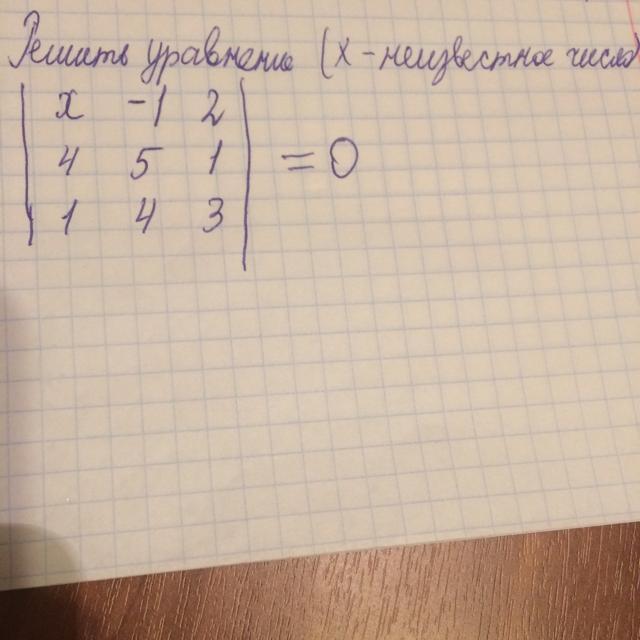 Решить уравнение (x – неизвестное число)
x -1 2
4 5 1 = 0
1 4 3